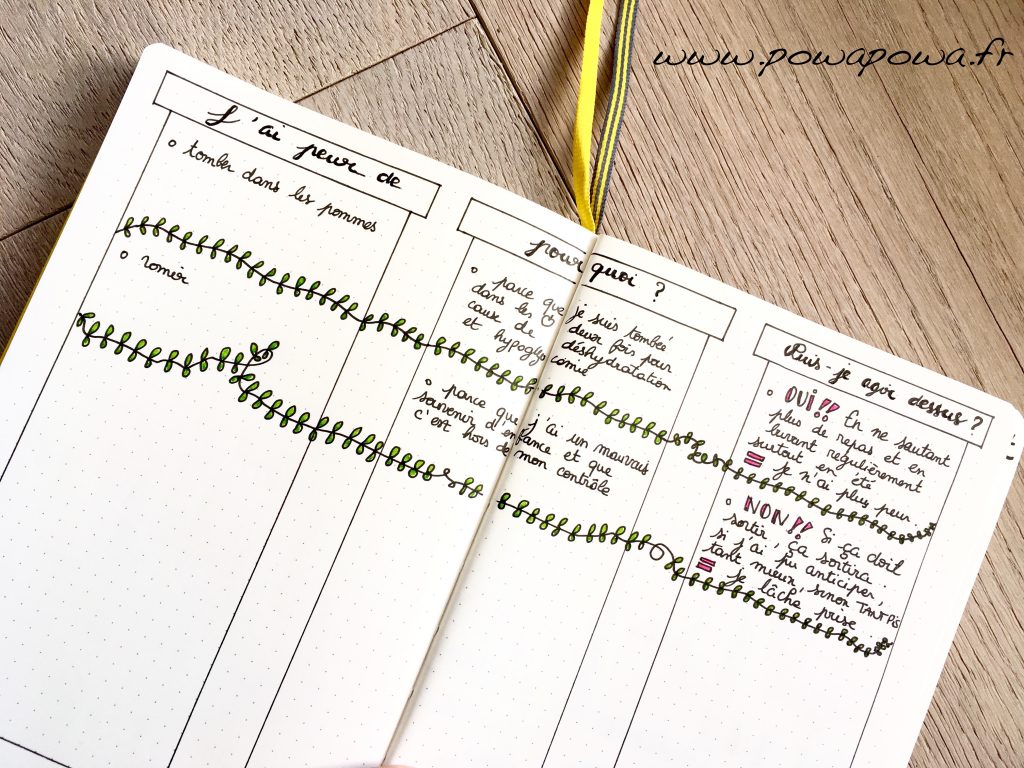 www.powapowa.fr
J'ai peur de
• tomber dans les pommes
• vomir
pourquoi ?
• parce que je suis tombée
dans les deux fois par
cause de déshydratation
et hypoglycémie
• parce que j'ai un mauvais
souvenir d'enfance et que
c'est hors de mon contrôle
Puis-je agir dessus ?
• OUI!! En ne sautant
plus de repas et en
buvant régulièrement
surtout en été
= je n'ai plus peur.
• NON!! Si ça doit
sortir, ça sortira.
si j'ai pu anticiper,
tant mieux, sinon TANT PIS
= je lâche prise.